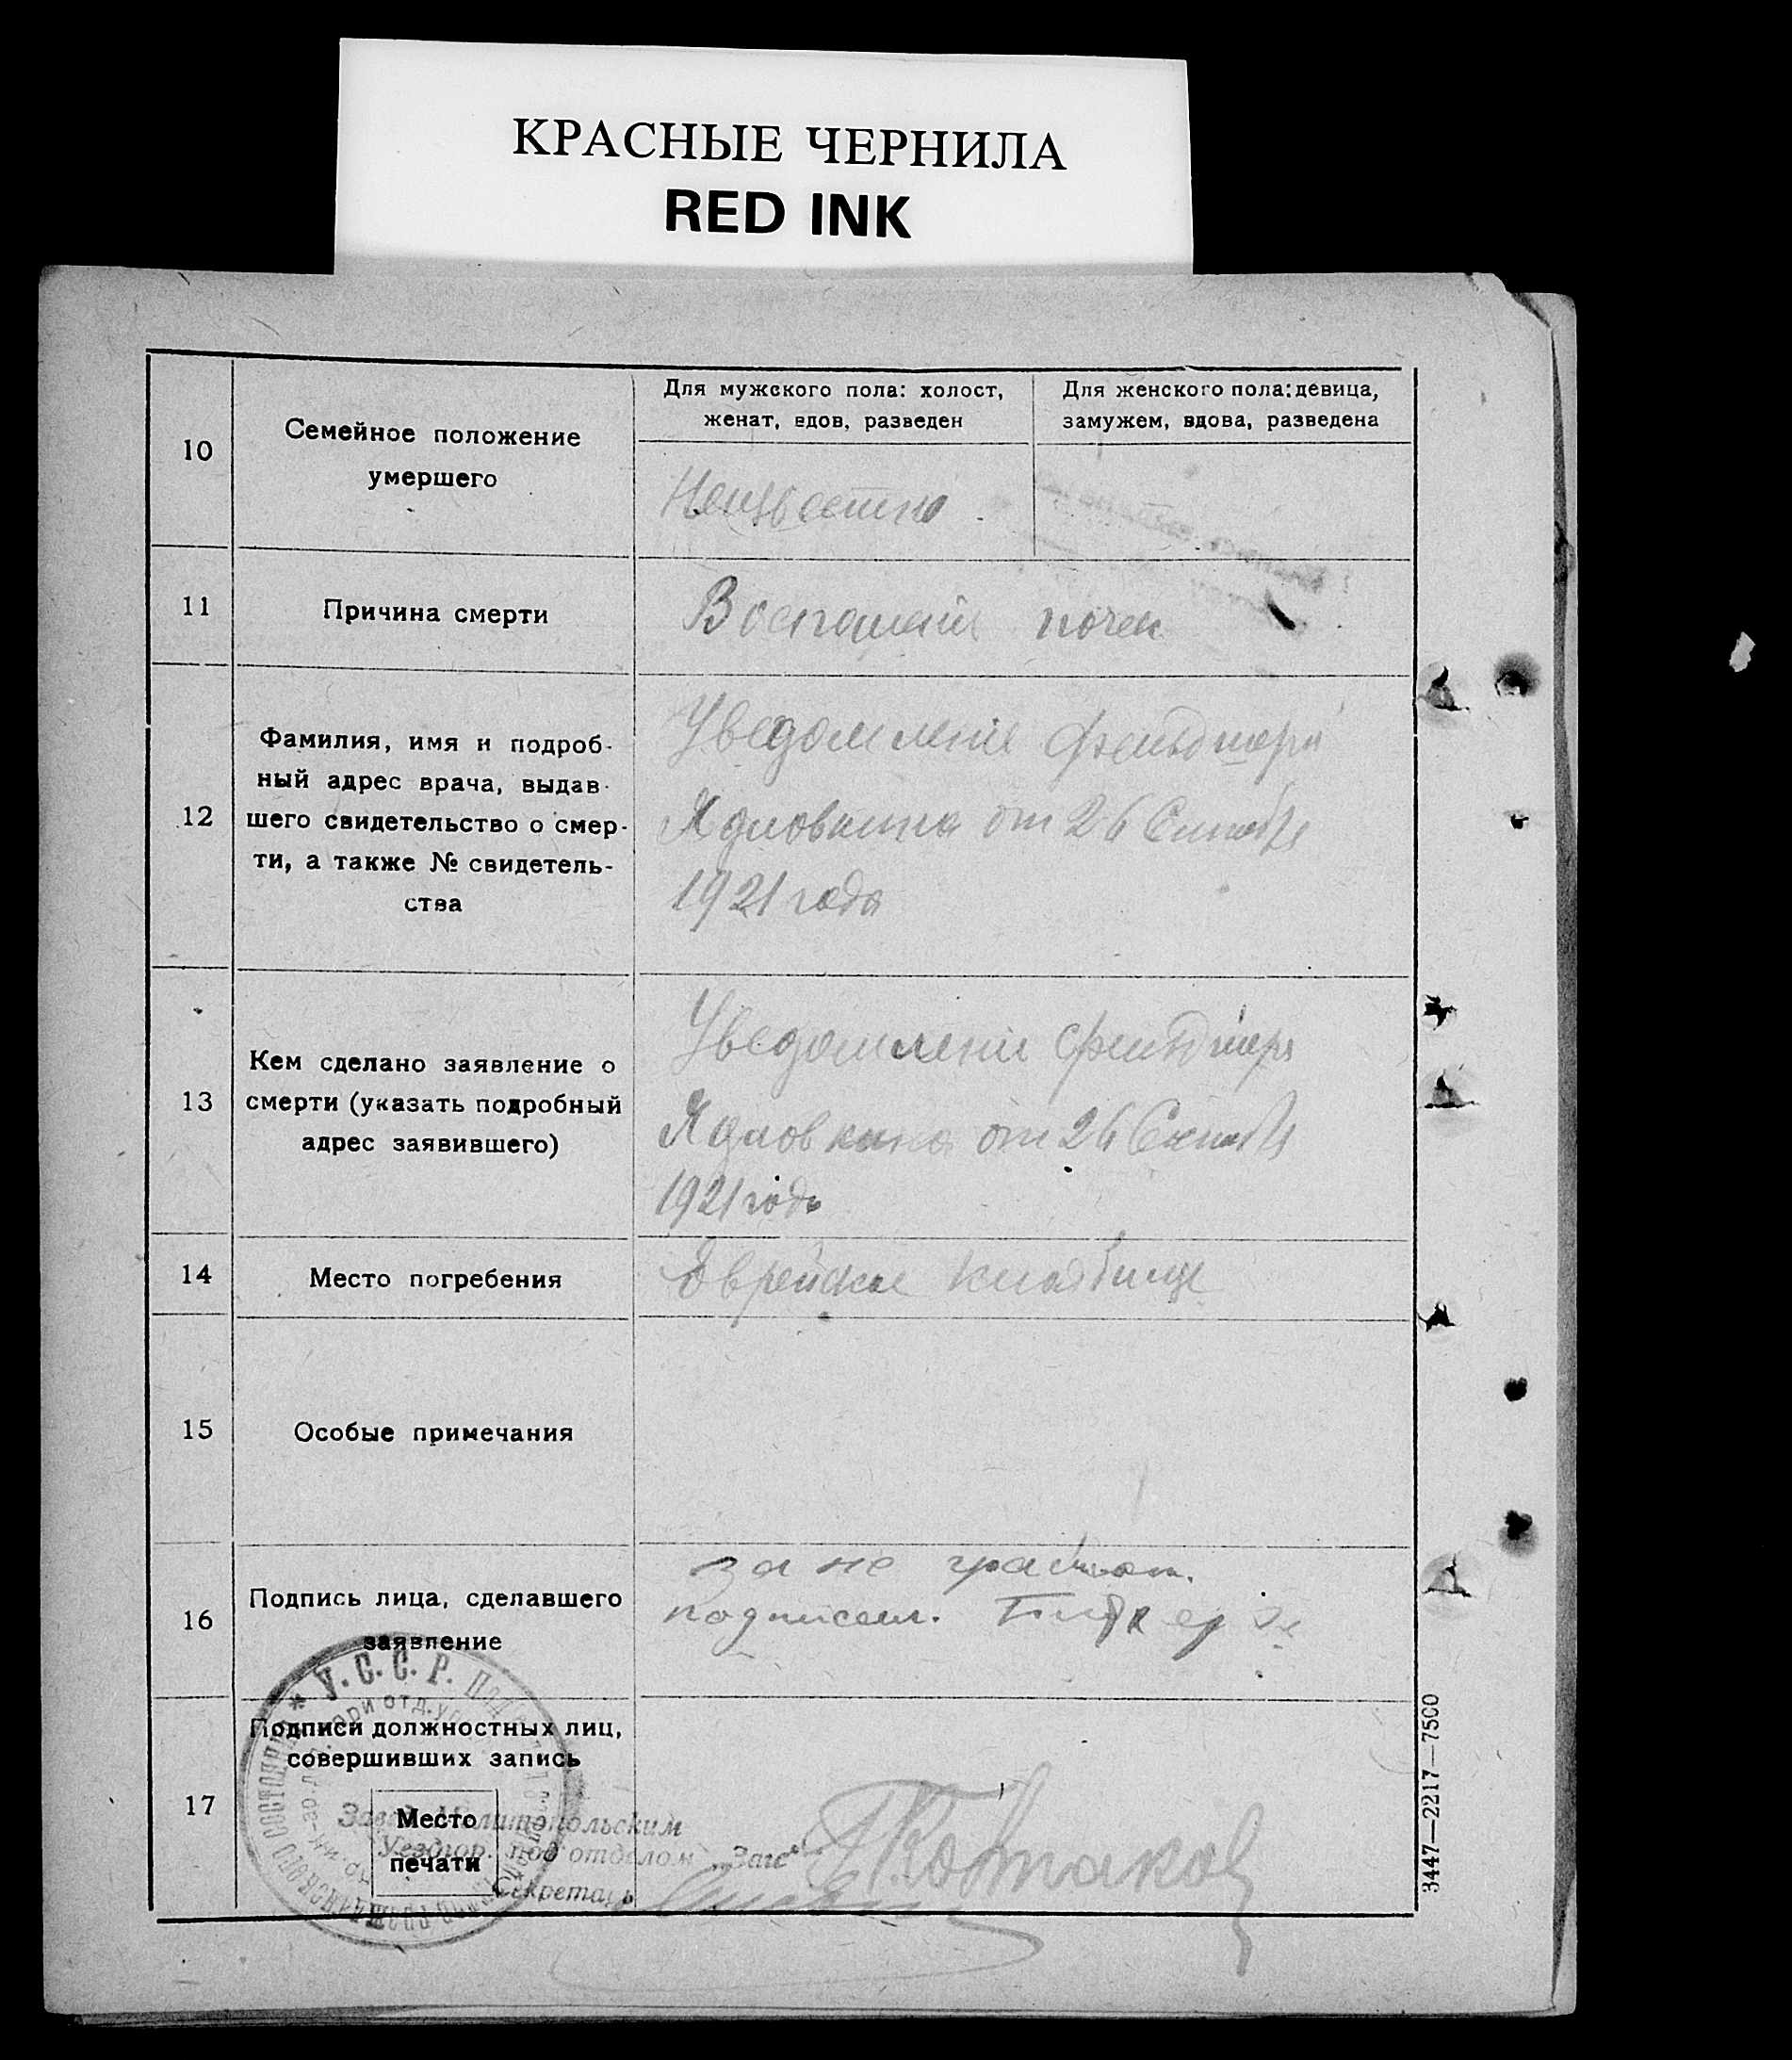 КРАСНЫЕ ЧЕРНИЛА
RED INK
10
Семейное положение
умершего
Для мужского пола: холост,
женат, вдов, разведен
Для женского пола: девица,
замужем, вдова, разведена
Неизвестно
11
Причина смерти
Воспаление почек
12
Фамилия, имя и подроб-
ный адрес врача, выдав-
шего свидетельство о смер-
ти, а также № свидетель-
ства
Уведомление фельдшера
от 26 Сентября
1921 года
13
Кем сделано заявление о
смерти (указать подробный
адрес заявившего)
Уведомление фельдшера
от 26 Сентября
1921 года
14
Место погребения
Еврейское кладбище
15
Особые примечания
16
Подпись лица, сделавшего
заявление
за не грамот.
подписал.
17
Подписи должностных лиц,
совершивших запись
Место
печати
У. С. С. Р.
Мелитопольским
под‘отделом „Загс“
Секретарь
3447—2217—7500